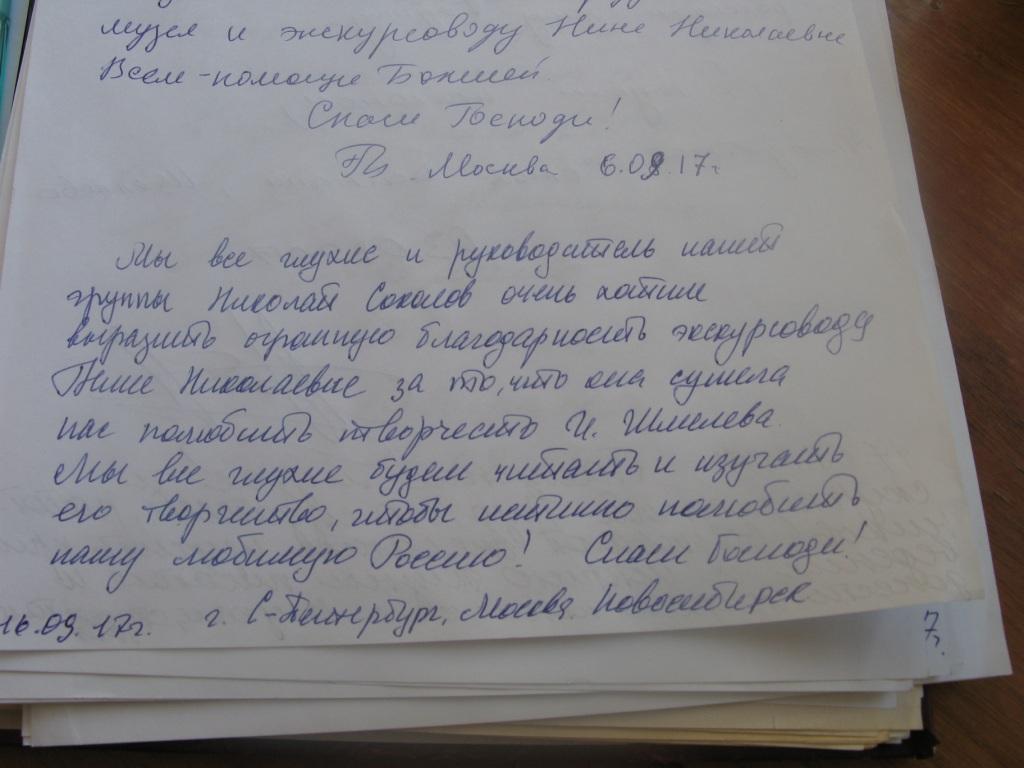 музея и экскурсоводу Нине Николаевне
Всем - помощи Божией.
Спаси Господи!
Москва 6.08.17г
Мы все глухие и руководитель нашей
группы Николай Соколов очень хотим
выразить огромную благодарность экскурсоводу
Нине Николаевне за то, что она сумела
нас полюбить творчество И. Шмелева.
Мы все глухие будем читать и изучать
его творчество, чтобы истинно полюбить
нашу любимую Россию! Спаси Господи!
16.09.17г. г. С-Петербург, Москва, Новосибирск
7
г.